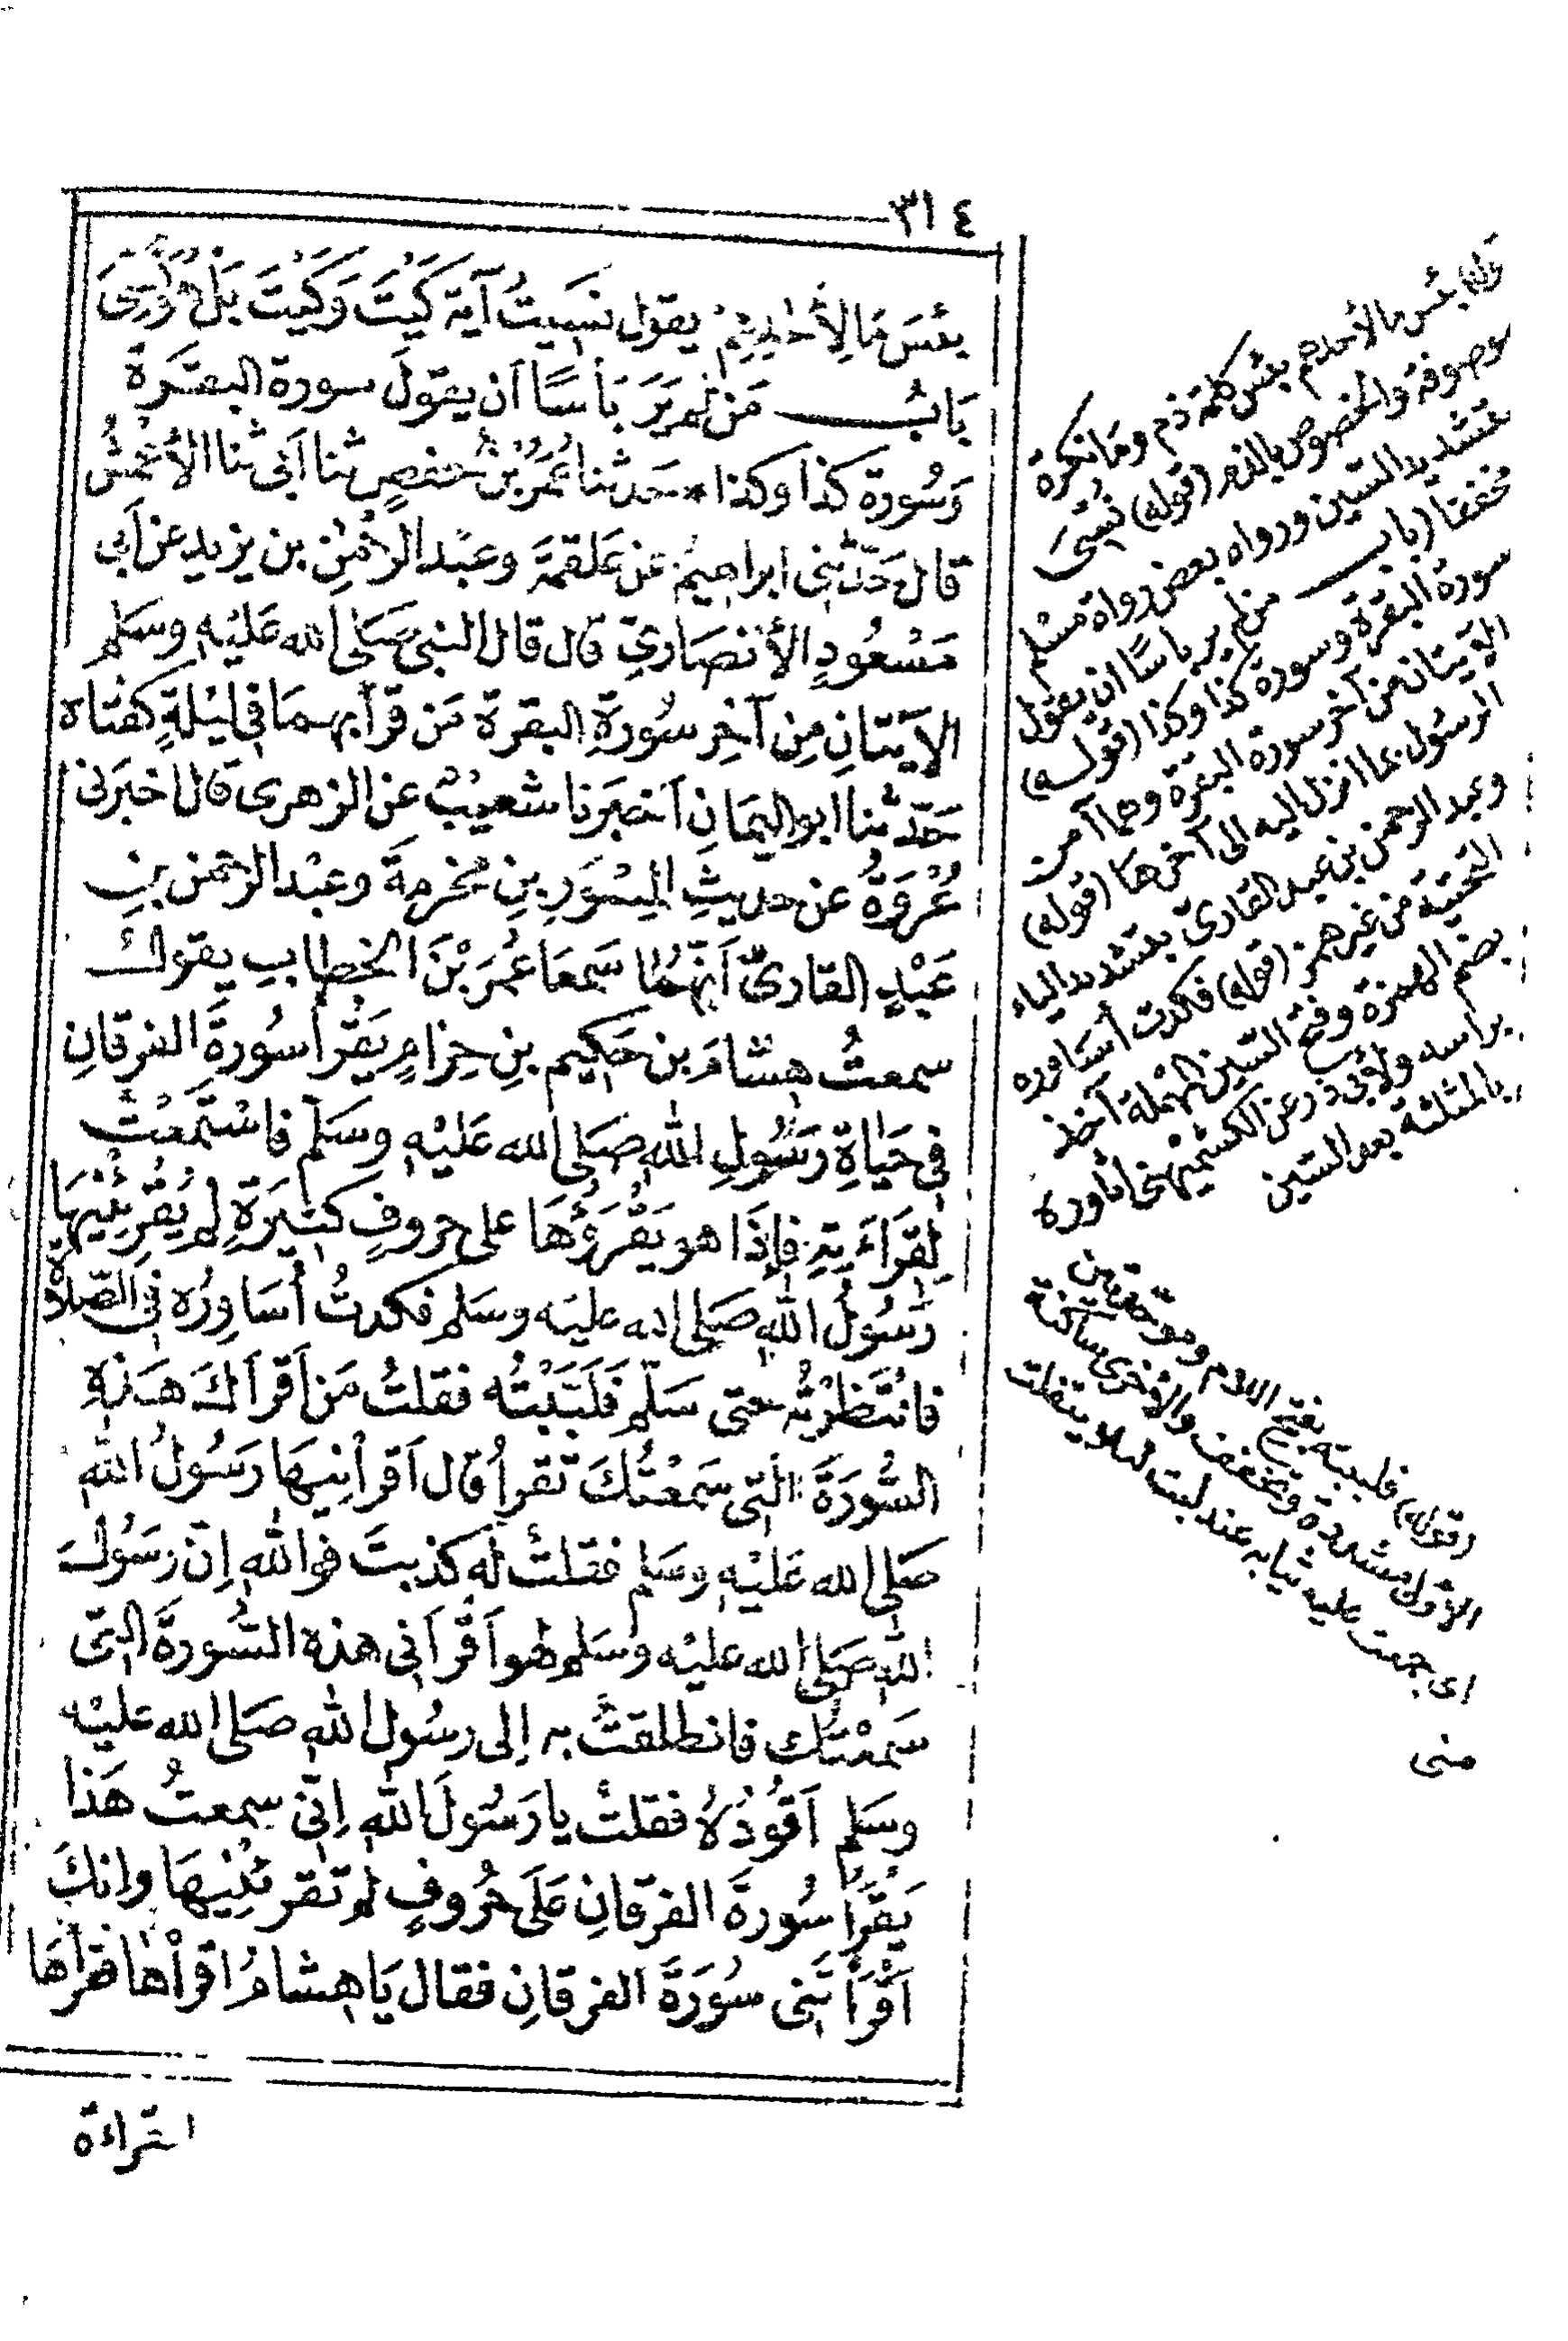 ٣١٤
بِئْسَ مَا لِأَحَدِهِمْ يقول نَسِيتُ آيَةَ كَيْتَ وَكَيْتَ بَلْ هُوَ نُسِّىَ
بَابُ مَن لَمْ يَرَ بَأسًا أن يقولَ سورة البقَرَة
وَسُورَة كذا وكذا * حَدثنا عُمَرُ بْنُ حَفصٍ ثنا أَبى ثنا الأَعْمَشُ
قال حَدَّثَنِى ابراهيمُ عن عَلقمَةَ وعَبْد الرحْمٰنِ بن يزيد عن أَبى
مَسْعُودٍ الأَنصَارىِّ قال قال النبىُّ صَلى الله عَلَيْهِ وسَلم
الآيَتانِ مِن آخِرِ سُورَةِ البقرة مَن قرأ بهمَا فى لَيْلةٍ كفتاه
حَدّثنا ابو اليمَانِ أخبَرَنا شعيبٌ عن الزهرى قال أخبَرَنى
عُرْوَةُ عن حديثِ المِسْوَرِ بنِ مَخرمةَ وعَبْد الرحمٰن بنِ
عَبْدٍ القارىّ أنّهُمَا سَمعَا عُمَرَ بْنَ الخطاب يقول
سمعتُ هِشامَ بن حَكِيم بنِ حِزامٍ يَقْرأ سُورةَ الفرقانِ
فى حَيَاةِ رَسُولِ اللهِ صَلى الله عَلَيْهِ وسَلم فاسْتَمَعْتُ
لِقرَاءَتِهِ فإِذَا هو يَقْرَؤُهَا على حروفٍ كثيرَةٍ لم يُقْرِئْنِيهَا
رَسُولُ اللهِ صَلى الله عليه وسَلم فكدتُ أُسَاوِرُه فى الصّلاة
فانْتَظَرْتُه حتى سَلَّم فَلَبَبْتُه فقلتُ مَن أقرأكَ هَذِهِ
السُّورَةَ التى سَمعْتُكَ تقرأ قال أقرأنِيهَا رَسُولُ الله
صَلى الله عَلَيْهِ وسَلم فقلتُ له كذبتَ فوالله إنّ رَسُولَ
اللهِ صَلى الله عليْه وسَلم لهو أقرَأَنى هذه السُّورةَ التى
سَمعْتُك فانطلقتُ به إلى رسُول اللهِ صَلى الله عليْه
وسَلم أقودُهُ فقلتُ يا رَسُولَ اللهِ إنّى سمعتُ هَذا
يَقْرَأُ سُورةَ الفرقانِ عَلَى حُرُوفٍ لم تقرئْنِيهَا وإنكَ
أَقْرَأْتَنِى سُورَةَ الفرقانِ فقال يَا هِشامُ اقرأْها فقرأهَا
القراءة
قوله بئس ما لأحدهم بئس كلمة ذم وما نكرة
موصوفة والمخصوص بالذم (قوله) نُسِّىَ
بتشديد السين ورواه بعض رواة مسلم
مخففا (باب من لم ير بأسًا ان يقول
سورة البقرة وسورة كذا وكذا (قوله)
الآيتان من آخر سورة البقرة وهما آمن
الرسول بما انزل اليه الى آخرها (قوله)
وعبد الرحمن بن عبد القارىّ بتشديد الياء
التحتية من غير همز (قوله) فكدت أساوره
بضم الهمزة وفتح السين المهملة آخذ
برأسه ولأبى ذر عن الكشميهنى أثاوره
بالمثلثة بعد السين
(قوله) فلببته بفتح اللام وموحدتين
الأولى مشددة وتخفف والأخرى ساكنة
اى جمعت عليه ثيابه عند لبته لئلا يتفلت
منى